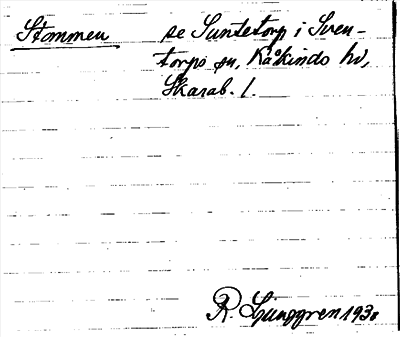 Stommen se Suntetorp i Sven-
torps sn, Kåkinds hd,
Skarab. l.
R. Ljunggren 1938